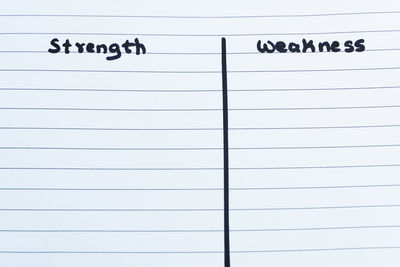 Strength Weakness